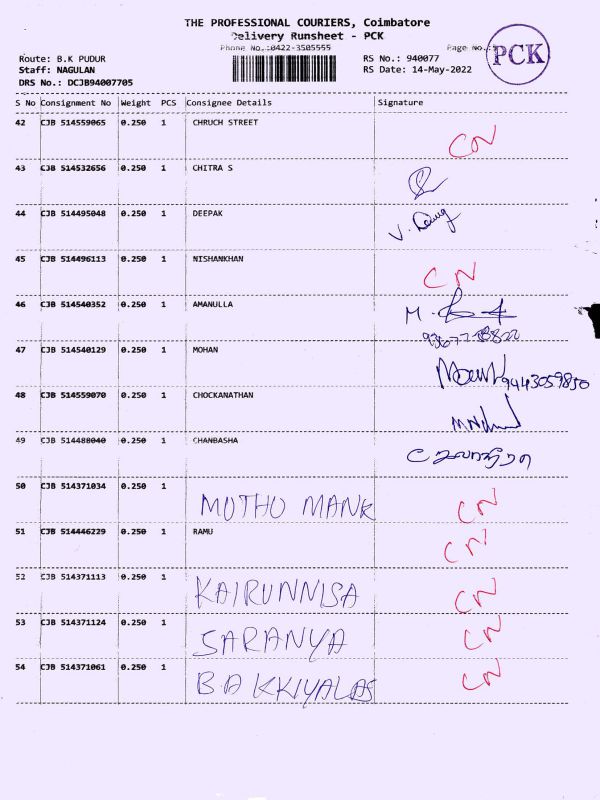 THE PROFESSIONAL COURIERS, Coimbatore
Delivery Runsheet - PCK
Phone No.:0422-3505555
Page No.:
PCK
Route: B.K PUDUR
RS No.: 940077
Staff: NAGULAN
RS Date: 14-May-2022
DRS No.: DCJB94007705
S No Consignment No Weight PCS Consignee Details Signature
42 CJB 514559065 0.250 1 CHRUCH STREET CN
43 CJB 514532656 0.250 1 CHITRA S
44 CJB 514495048 0.250 1 DEEPAK V.
45 CJB 514496113 0.250 1 NISHANKHAN CN
46 CJB 514540352 0.250 1 AMANULLA M.
47 CJB 514540129 0.250 1 MOHAN 9443059850
48 CJB 514559070 0.250 1 CHOCKANATHAN
49 CJB 514488040 0.250 1 CHANBASHA
50 CJB 514371034 0.250 1 MUTHU MANK CN
51 CJB 514446229 0.250 1 RAMU CN
52 CJB 514371113 0.250 1 KAIRUNNISA CN
53 CJB 514371124 0.250 1 SARANYA CN
54 CJB 514371061 0.250 1 CN